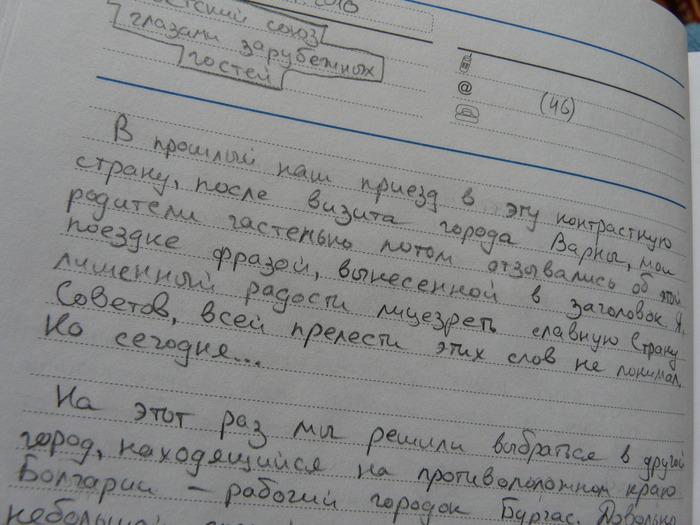 2010
ветский союз
глазами зарубежных
гостей
@
(46)
В прошлый наш приезд в эту контрастную
страну, после визита города Варны, мои
родители частенько потом отзывались об этой
поездке фразой, вынесенной в заголовок. Я,
лишенный радости лицезреть славную Страну
Советов, всей прелести этих слов не понимал.
Но сегодня...
На этот раз мы решили выбраться в другой
город, находящийся на противоположном краю
Болгарии – рабочий городок Бургас. Довольно